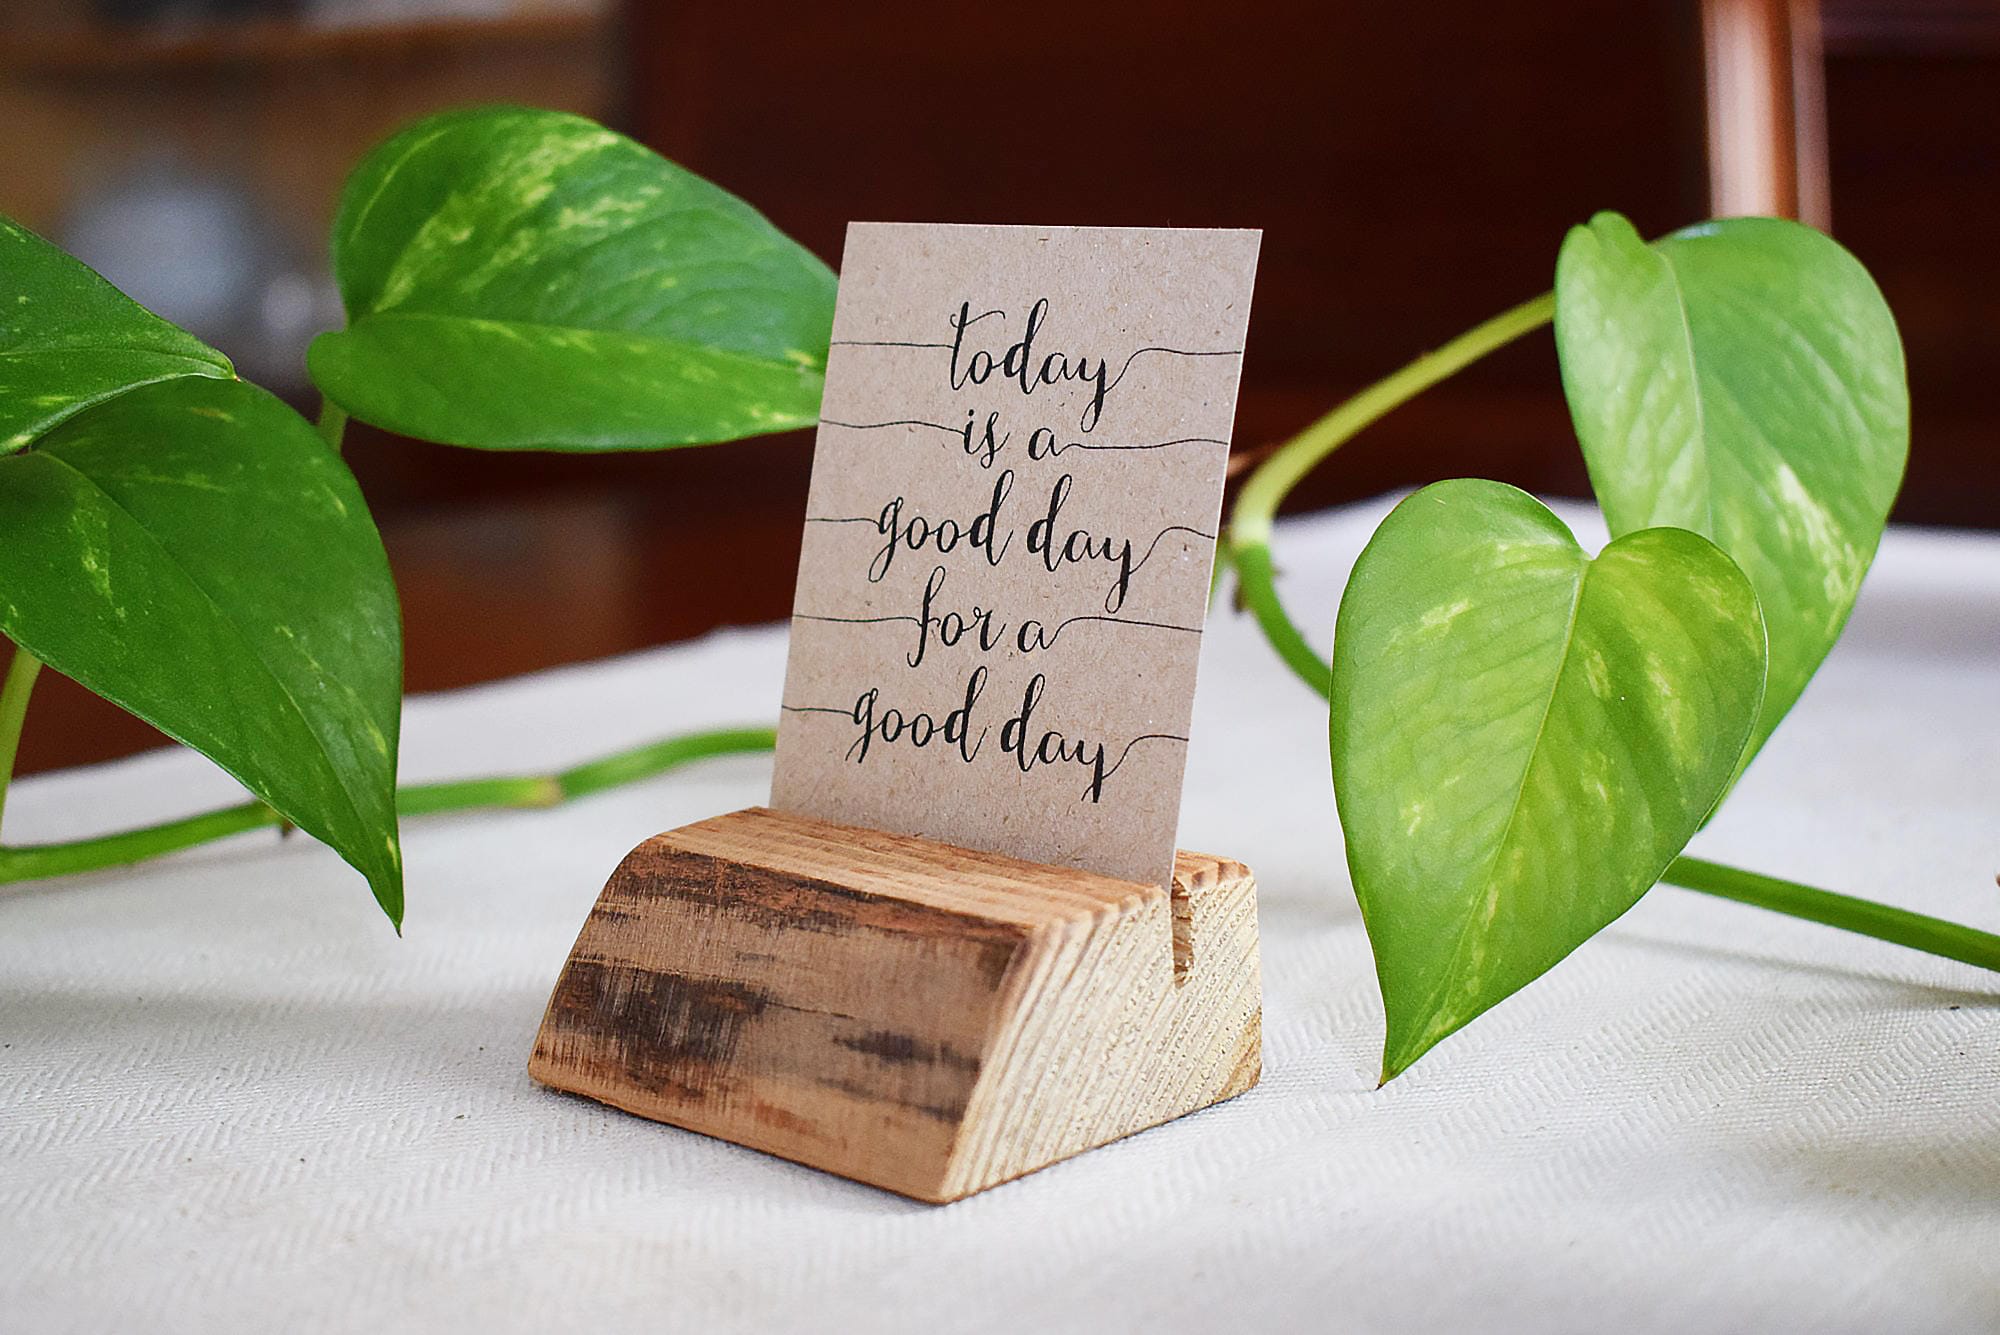 today
is a
good day
for a
good day